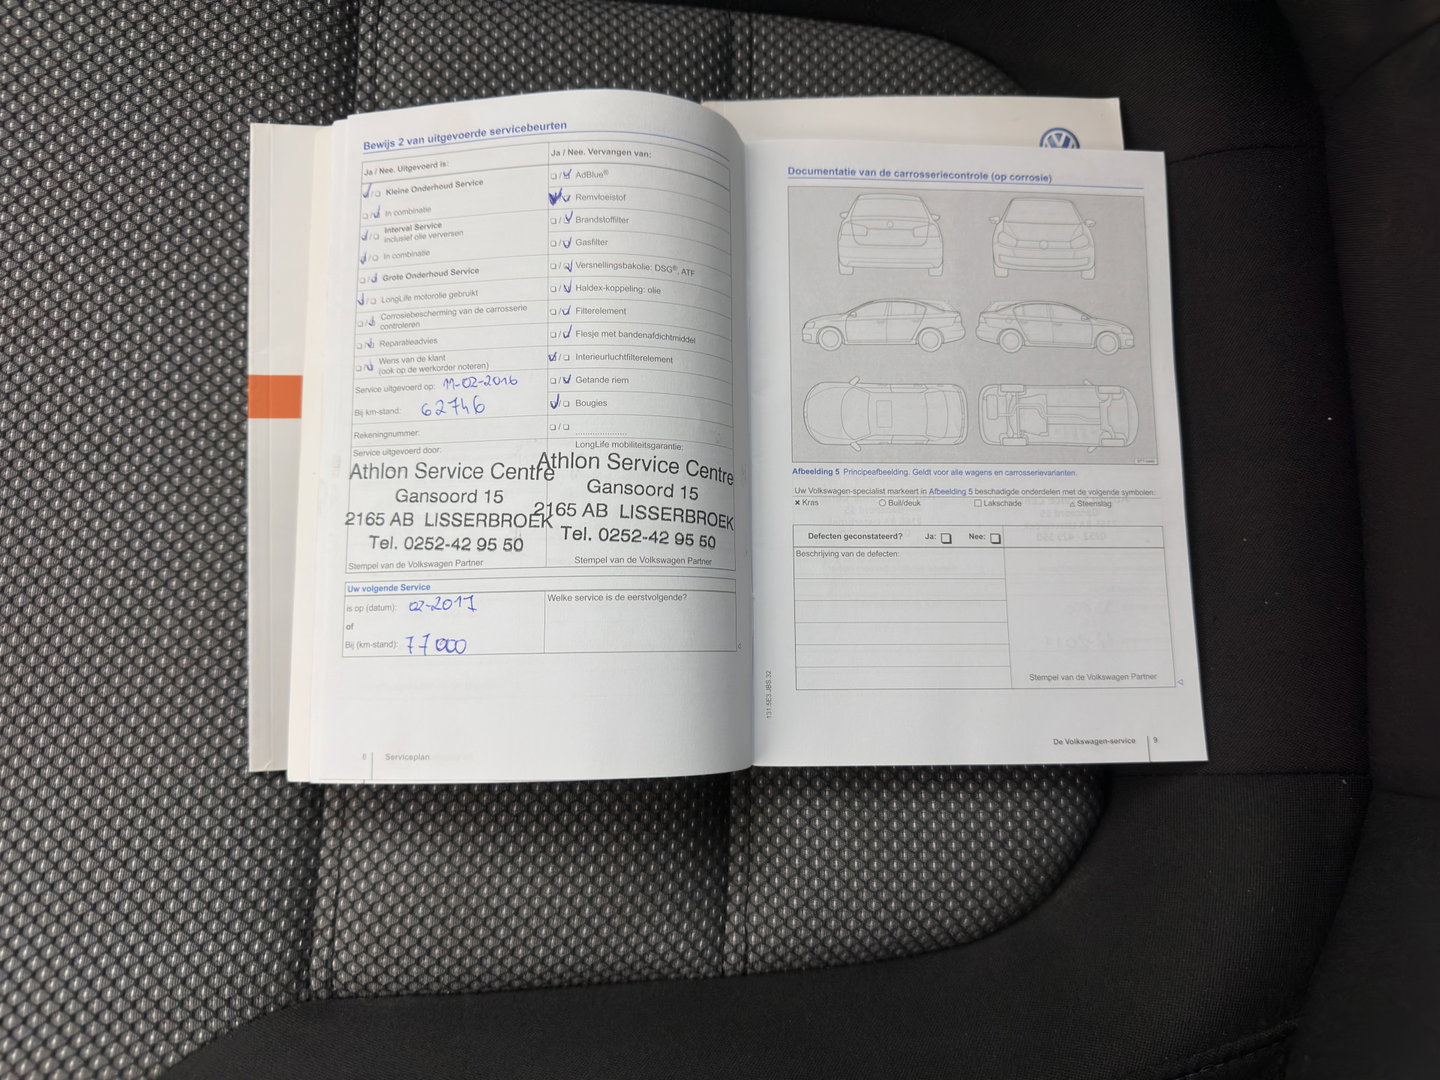 Bewijs 2 van uitgevoerde servicebeurten
Ja / Nee. Uitgevoerd is:
Kleine Onderhoud Service
In combinatie
Interval Service
inclusief olie verversen
In combinatie
Grote Onderhoud Service
LongLife motorolie gebruikt
Corrosiebescherming van de carrosserie
controleren
Reparatieadvies
Wens van de klant
(ook op de werkorder noteren)
Service uitgevoerd op: 11-02-2016
Bij km-stand: 62746
Rekeningnummer:
Service uitgevoerd door:
Athlon Service Centre
Gansoord 15
2165 AB LISSERBROEK
Tel. 0252-42 95 50
Stempel van de Volkswagen Partner
Ja / Nee. Vervangen van:
AdBlue®
Remvloeistof
Brandstoffilter
Gasfilter
Versnellingsbakolie: DSG®, ATF
Haldex-koppeling: olie
Filterelement
Flesje met bandenafdichtmiddel
Interieurluchtfilterelement
Getande riem
Bougies
LongLife mobiliteitsgarantie:
Athlon Service Centre
Gansoord 15
2165 AB LISSERBROEK
Tel. 0252-42 95 50
Stempel van de Volkswagen Partner
Uw volgende Service
is op (datum): 02-2017
of
Bij (km-stand): 77000
Welke service is de eerstvolgende?
Serviceplan
Documentatie van de carrosseriecontrole (op corrosie)
Afbeelding 5 Principeafbeelding. Geldt voor alle wagens en carrosserievarianten.
Uw Volkswagen-specialist markeert in Afbeelding 5 beschadigde onderdelen met de volgende symbolen:
× Kras ○ Buil/deuk □ Lakschade △ Steenslag
Defecten geconstateerd? Ja: Nee:
Beschrijving van de defecten:
Stempel van de Volkswagen Partner
131.5E3.JBS.32
De Volkswagen-service 9